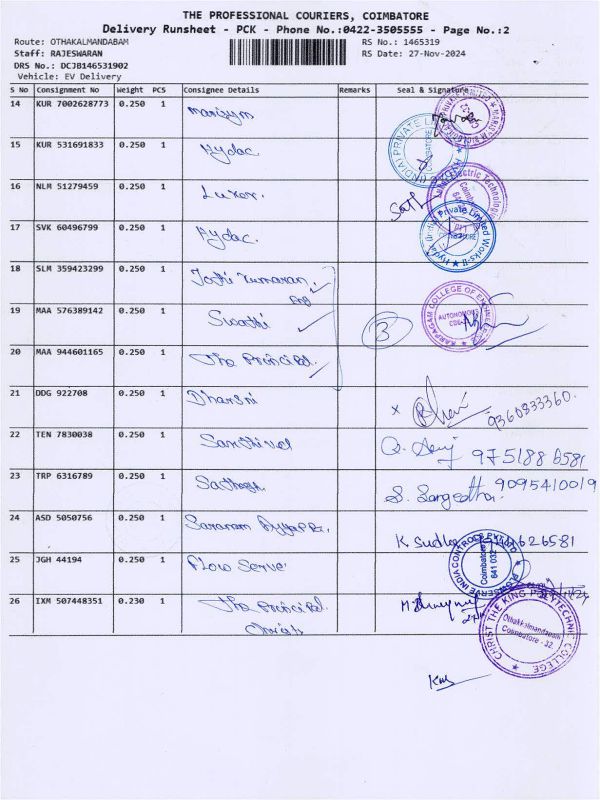 THE PROFESSIONAL COURIERS, COIMBATORE
Delivery Runsheet - PCK - Phone No.:0422-3505555 - Page No.:2
Route: OTHAKALMANDABAM RS No.: 1465319
Staff: RAJESWARAN RS Date: 27-Nov-2024
DRS No.: DCJB146531902
Vehicle: EV Delivery
S No Consignment No Weight PCS Consignee Details Remarks Seal & Signature
14 KUR 7002628773 0.250 1
15 KUR 531691833 0.250 1 Hydac
16 NLM 51279459 0.250 1 Luxor.
17 SVK 60496799 0.250 1 Hydac.
18 SLM 359423299 0.250 1
19 MAA 576389142 0.250 1 Swathi
3
KARPAGAM COLLEGE OF ENGINEERING
AUTONOMOUS
20 MAA 944601165 0.250 1 The Principal.
21 DDG 922708 0.250 1 Dharsni x 9360833360.
22 TEN 7830038 0.250 1 Santhivel 975188 6581
23 TRP 6316789 0.250 1 S. Sangeetha. 9095410019
24 ASD 5050756 0.250 1 K. Sudha
25 JGH 44194 0.250 1 Flow Serve
Coimbatore
641 032
26 IXM 507448351 0.230 1 The Principal.
CHRIST THE KING POLYTECHNIC COLLEGE
Othakkalmandapam
Coimbatore - 32.